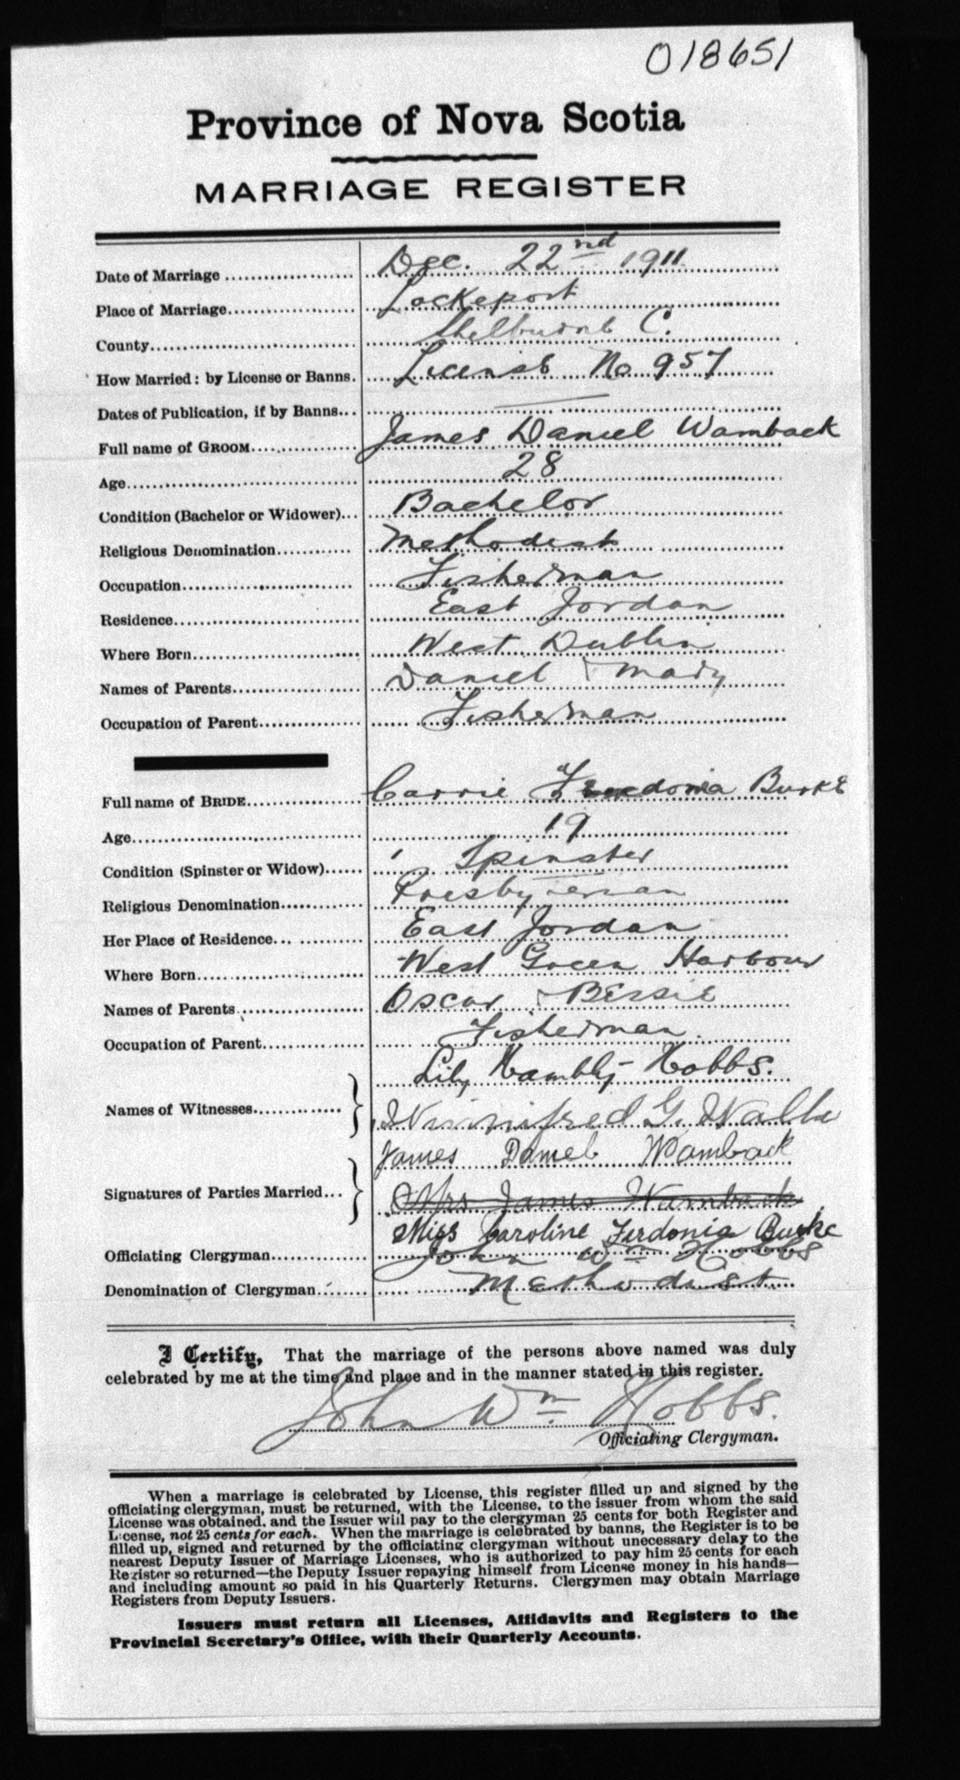 018651
Province of Nova Scotia
MARRIAGE REGISTER
Date of Marriage Dec. 22nd 1911
Place of Marriage Lockeport
County Shelburne C.
How Married: by License or Banns. License No 957
Dates of Publication, if by Banns
Full name of GROOM James Daniel Wamback
Age 28
Condition (Bachelor or Widower) Bachelor
Religious Denomination Methodist
Occupation Fisherman
Residence East Jordan
Where Born West Dublin
Names of Parents Daniel & Mary
Occupation of Parent Fisherman
Full name of BRIDE Carrie Burke
Age 19
Condition (Spinster or Widow) Spinster
Religious Denomination Presbyterian
Her Place of Residence East Jordan
Where Born West Green Harbour
Names of Parents Oscar & Bessie
Occupation of Parent Fisherman.
Lily Hambly Hobbs.
Names of Witnesses
Winnifred G.
James Daniel Wamback
Signatures of Parties Married Mrs James Wamback
Miss Caroline Ferdonia Burke
Officiating Clergyman John Wm Hobbs
Denomination of Clergyman Methodist
I Certify, That the marriage of the persons above named was duly
celebrated by me at the time and place and in the manner stated in this register.
John Wm Hobbs.
Officiating Clergyman.
When a marriage is celebrated by License, this register filled up and signed by the
officiating clergyman, must be returned, with the License, to the issuer from whom the said
License was obtained, and the Issuer will pay to the clergyman 25 cents for both Register and
License, not 25 cents for each. When the marriage is celebrated by banns, the Register is to be
filled up, signed and returned by the officiating clergyman without unecessary delay to the
nearest Deputy Issuer of Marriage Licenses, who is authorized to pay him 25 cents for each
Register so returned—the Deputy Issuer repaying himself from License money in his hands—
and including amount so paid in his Quarterly Returns. Clergymen may obtain Marriage
Registers from Deputy Issuers.
Issuers must return all Licenses, Affidavits and Registers to the
Provincial Secretary's Office, with their Quarterly Accounts.